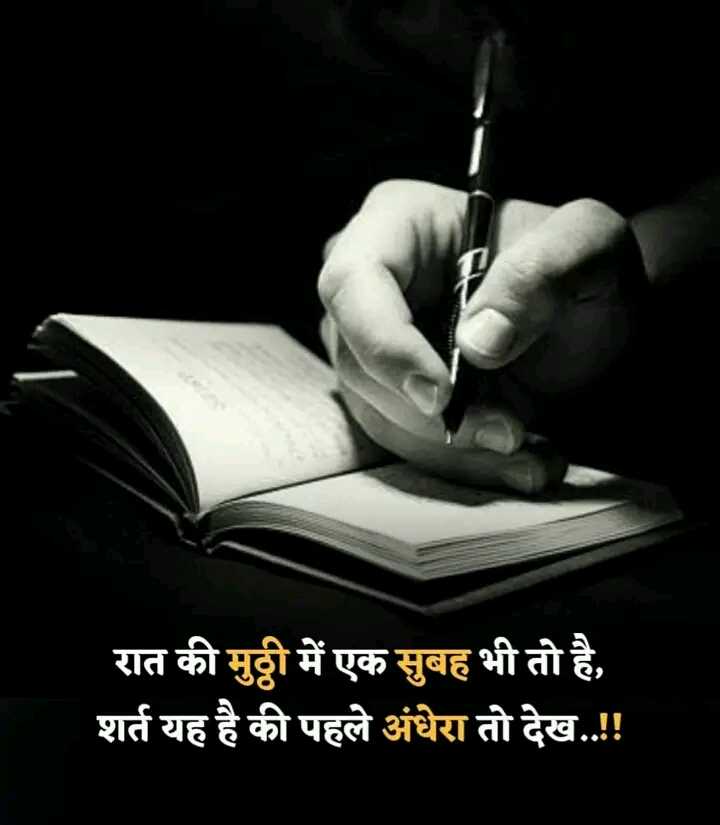 रात की मुठ्ठी में एक सुबह भी तो है,
शर्त यह है की पहले अंधेरा तो देख..!!